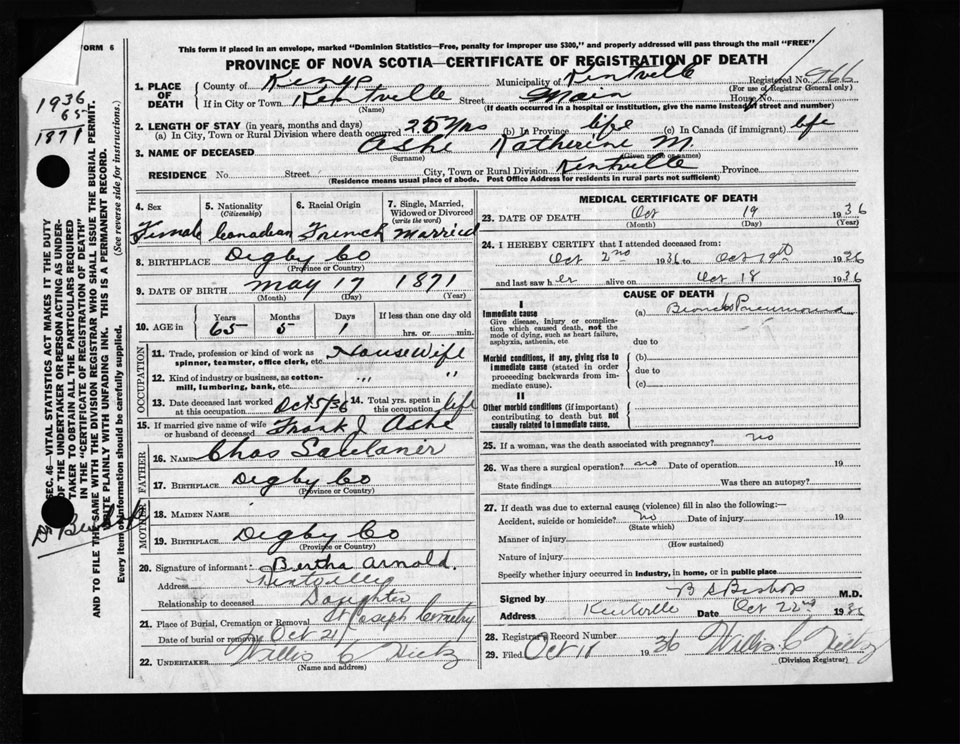 FORM 6
This form if placed in an envelope, marked "Dominion Statistics—Free, penalty for improper use $300," and properly addressed will pass through the mail "FREE"
PROVINCE OF NOVA SCOTIA—CERTIFICATE OF REGISTRATION OF DEATH
1936
65
1871
SEC. 46—VITAL STATISTICS ACT MAKES IT THE DUTY
OF THE UNDERTAKER OR PERSON ACTING AS UNDER-
TAKER TO OBTAIN ALL THE PARTICULARS REQUIRED
IN THE "CERTIFICATE OF REGISTRATION OF DEATH"
AND TO FILE THE SAME WITH THE DIVISION REGISTRAR WHO SHALL ISSUE THE BURIAL PERMIT.
WRITE PLAINLY WITH UNFADING INK. THIS IS A PERMANENT RECORD.
Every item of information should be carefully supplied. (See reverse side for instructions.)
1. PLACE OF DEATH
County of Kings Municipality of Kentville Registered No. 966
(For use of Registrar General only)
If in City or Town Kentville Street Main House No.
(Name) (If death occurred in a hospital or institution, give its name instead of street and number)
2. LENGTH OF STAY (in years, months and days)
(a) In City, Town or Rural Division where death occurred 25 yrs (b) In Province life (c) In Canada (if immigrant) life
3. NAME OF DECEASED Ashe Katherine M.
(Surname) (Given name or names)
RESIDENCE No. Street City, Town or Rural Division Kentville Province
(Residence means usual place of abode. Post Office Address for residents in rural parts not sufficient)
4. Sex 5. Nationality (Citizenship) 6. Racial Origin 7. Single, Married, Widowed or Divorced (write the word)
Female Canadian French Married
8. BIRTHPLACE Digby Co
(Province or Country)
9. DATE OF BIRTH May 17 1871
(Month) (Day) (Year)
10. AGE in Years Months Days If less than one day old
65 5 1 hrs. or min.
OCCUPATION
11. Trade, profession or kind of work as spinner, teamster, office clerk, etc. House Wife
12. Kind of industry or business, as cotton-mill, lumbering, bank, etc. " "
13. Date deceased last worked at this occupation Oct 5/36 14. Total yrs. spent in this occupation life
15. If married give name of wife or husband of deceased Frank J Ashe
FATHER
16. NAME Chas
17. BIRTHPLACE Digby Co
(Province or Country)
MOTHER
18. MAIDEN NAME
19. BIRTHPLACE Digby Co
(Province or Country)
20. Signature of informant Bertha Arnold.
Address Kentville
Relationship to deceased Daughter
21. Place of Burial, Cremation or Removal St Joseph Cemetry
Date of burial or removal Oct 21
22. UNDERTAKER Willis C
(Name and address)
MEDICAL CERTIFICATE OF DEATH
23. DATE OF DEATH Oct 19 1936
(Month) (Day) (Year)
24. I HEREBY CERTIFY that I attended deceased from:
Oct 2nd 1936 to Oct 19th 1936
and last saw her alive on Oct 18 1936
CAUSE OF DEATH
I
Immediate cause (a) Broncho Pneumonia
Give disease, injury or complication which caused death, not the mode of dying, such as heart failure, asphyxia, asthenia, etc
due to
Morbid conditions, if any, giving rise to immediate cause (stated in order proceeding backwards from immediate cause).
(b)
due to
(c)
II
Other morbid conditions (if important) contributing to death but not causally related to immediate cause.
25. If a woman, was the death associated with pregnancy? no
26. Was there a surgical operation? no Date of operation 19
State findings Was there an autopsy?
27. If death was due to external causes (violence) fill in also the following:—
Accident, suicide or homicide? No Date of injury 19
(State which)
Manner of injury
(How sustained)
Nature of injury
Specify whether injury occurred in industry, in home, or in public place
Signed by B S Bishop M.D.
Address Kentville Date Oct 22nd 1936
28. Registrar's Record Number
29. Filed Oct 1936 Willis C
(Division Registrar)